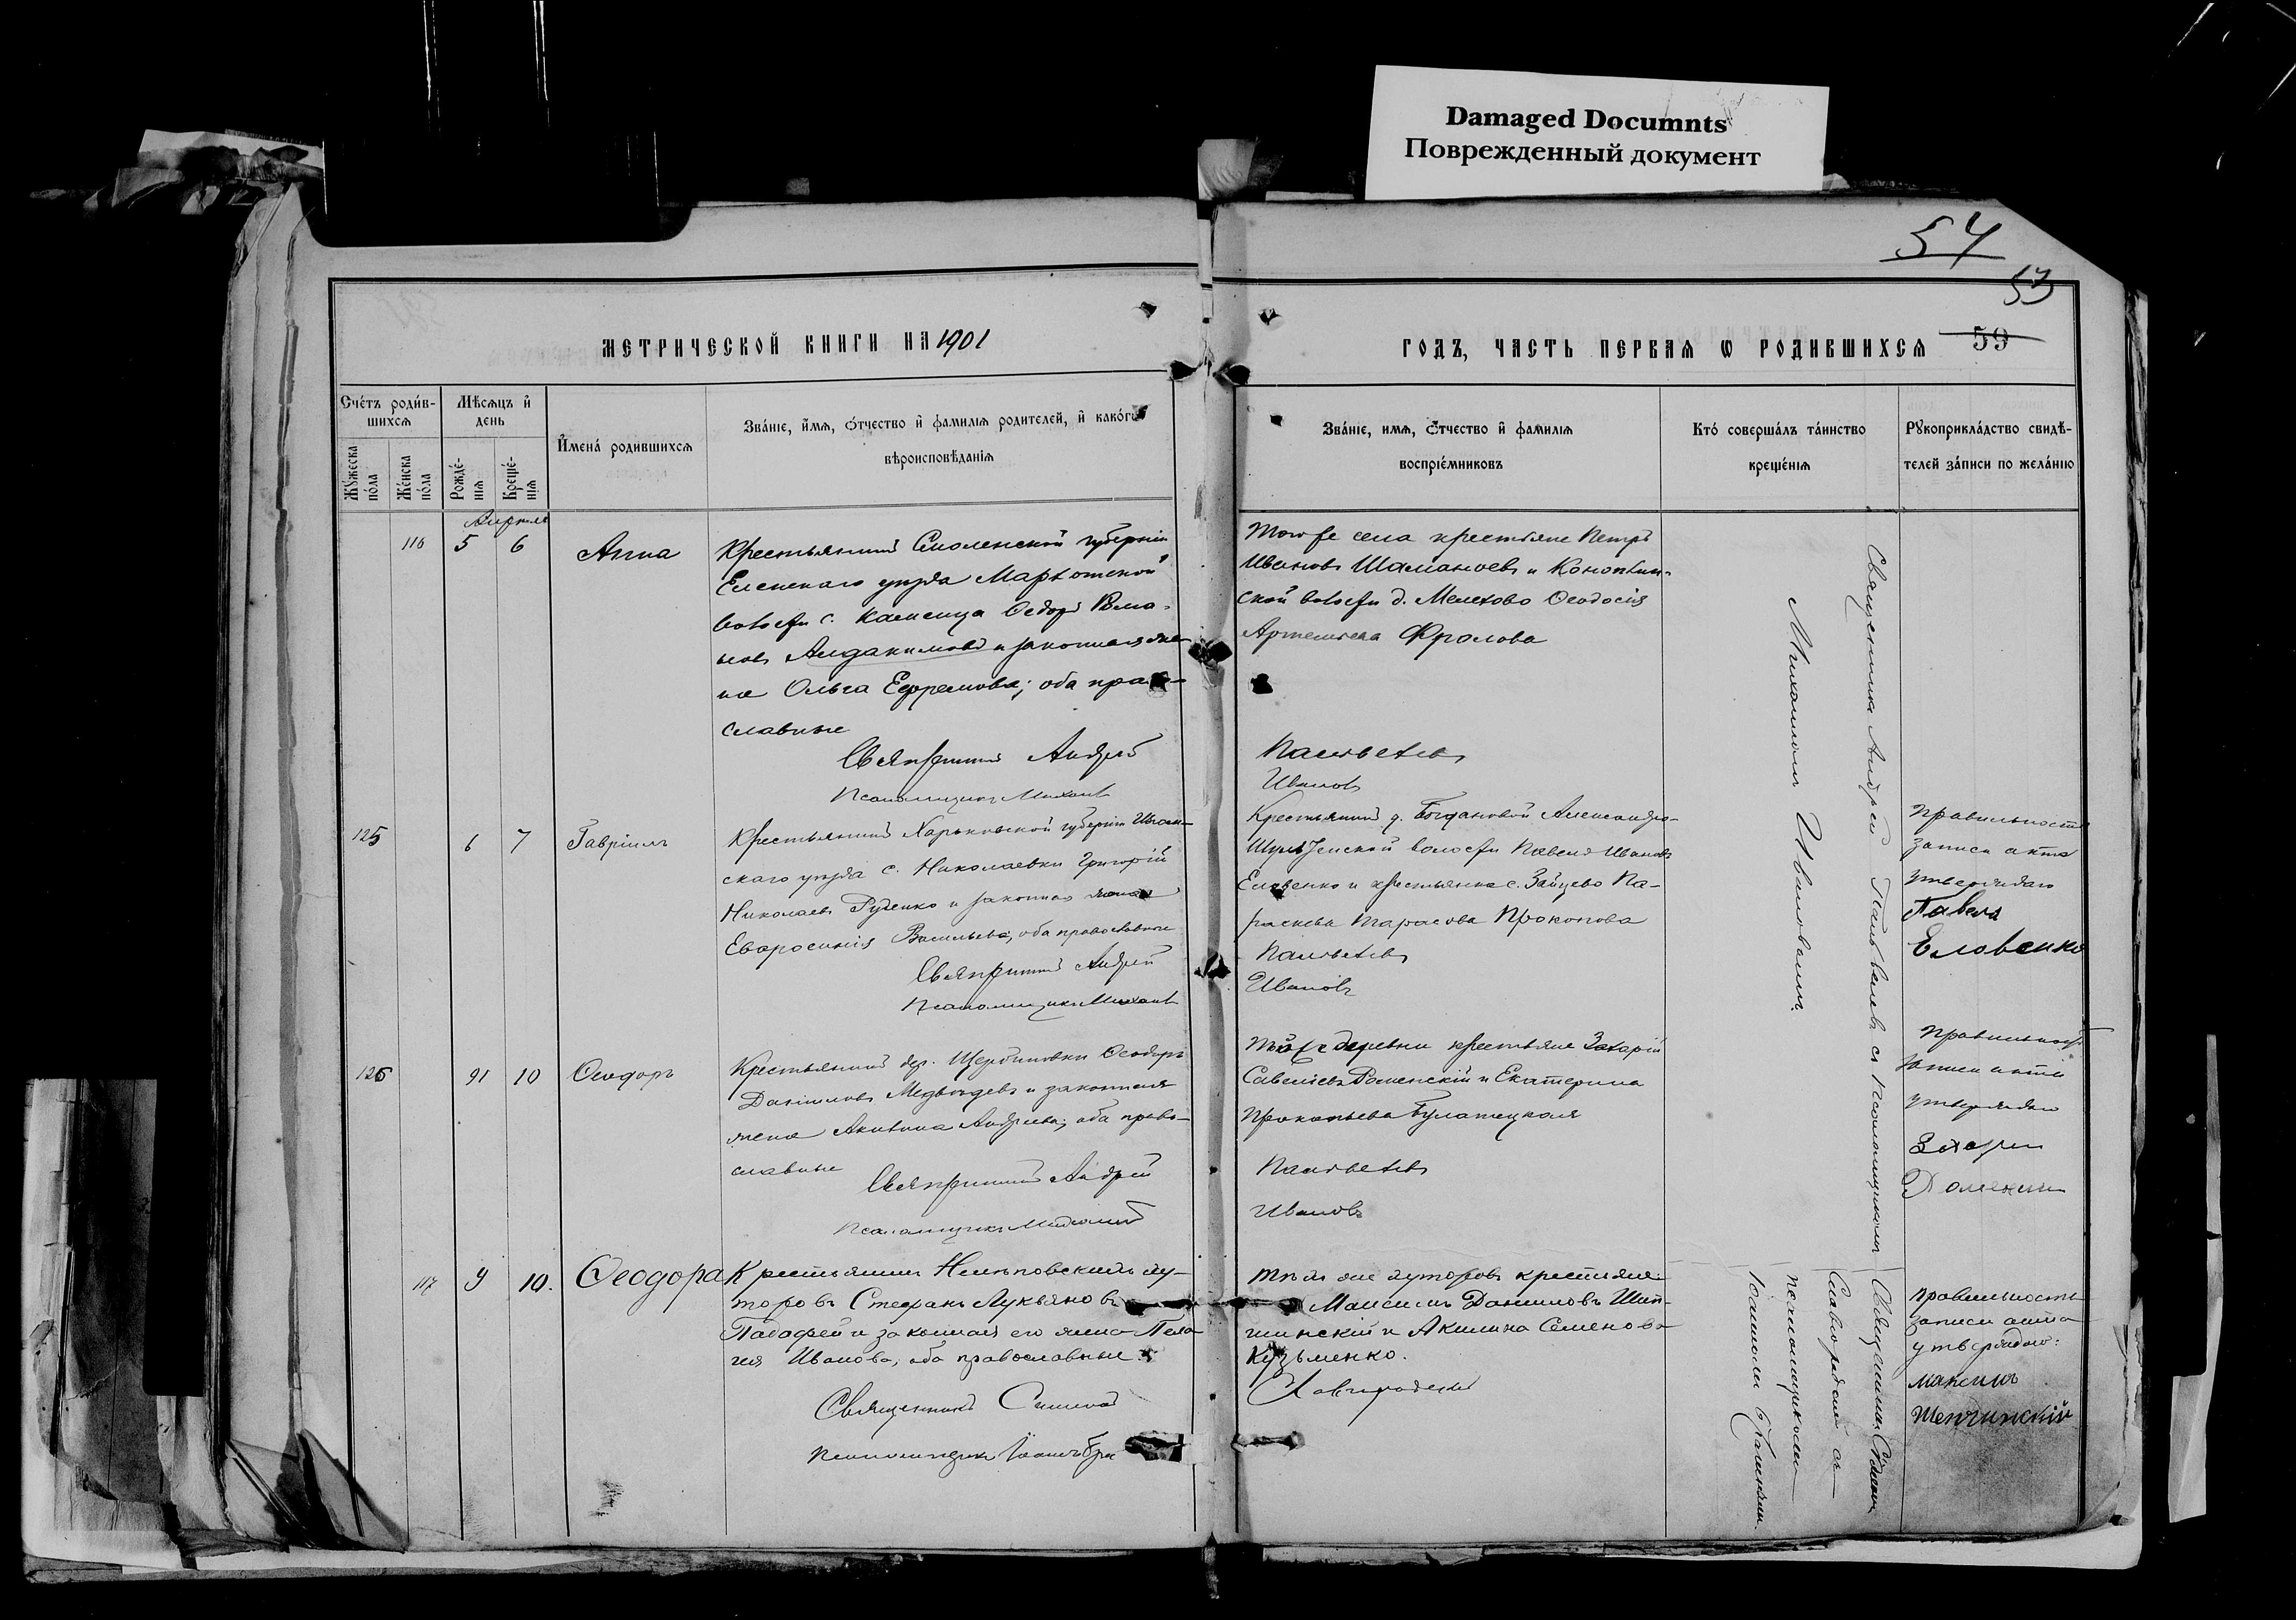 Damaged Documnts
Поврежденный документ
54
53
МЕТРИЧЕСКОЙ КНИГИ НА 1901
ГОДЪ, ЧАСТЬ ПЕРВАЯ Ѡ РОДИВШИХСЯ 59
Счетъ родив-
шихся
Мѣсяцъ и
день
Мужеска
пола
Женска
пола
Рожде-
нія
Креще-
нія
Имена родившихся
Званіе, имя, отчество и фамилія родителей, и какого
вѣроисповѣданія
Званіе, имя, отчество и фамилія
воспріемниковъ
Кто совершалъ таинство
крещенія
Рукоприкладство свидѣ-
телей записи по желанію
Апрель
116 5 6 Анна
Крестьянинъ Смоленской губерніи
Еленскаго уѣзда
волости с. Каменца Ѳедоръ Рома-
новъ Авдакимовъ и законная же-
на Ольга Ефремова; оба право-
славные
Священникъ Андрей
Псаломщикъ Михаилъ
Того же села крестьяне Петръ
Ивановъ Шамановъ и
ской волости д. Мелехово Ѳеодосія
Артемьева Фролова
Иванов
125 6 7 Гавріилъ
Крестьянинъ Харьковской губерніи Изюм-
скаго уѣзда с. Николаевки Григорій
Николаевъ Руденко и законная жена
Евфросинія Васильева; оба православные
Священникъ Андрей
Псаломщикъ Михаилъ
Крестьянинъ д. Богдановой Александро-
Шультинской волости Павелъ Ивановъ
Еловенко и крестьянка с. Зайцево Па-
раскева Тарасова Прокопова
Ивановъ
Правильность
записи акта
утверждаю
Павелъ
Еловенко
126 91 10 Ѳеодоръ
Крестьянинъ дер. Щербиновки Ѳеодоръ
Даніиловъ Медвѣдевъ и законная
жена Акилина Андреева; оба право-
славные
Священникъ Андрей
Псаломщикъ Михаилъ
Той же деревни крестьяне Захарій
Савеліевъ Роменскій и Екатерина
Прокопьева
Ивановъ
Правильность
записи акта
утверждаю
Захарий
117 9 10. Ѳеодора
Крестьянинъ Нелѣповскихъ ху-
торовъ Стефанъ Лукьяновъ
и законная его жена Пела-
гея Иванова, оба православные
Священникъ Симеон
Псаломщикъ Іоаннъ
Тѣхъ же хуторовъ крестьяне:
Максимъ Даниловъ Шеп-
шинскій и Акилина Семенова
Кузьменко.
Правильность
записи акта
утверждаю:
Максимъ
Священникъ Андрей съ псаломщикомъ
Михаиломъ Ивановымъ.
Священникъ Симеон
съ
псаломщикомъ
Іоанномъ